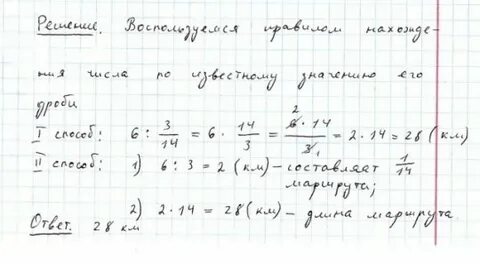 Решение. Воспользуемся правилом нахожде-
ния числа по известному значению его
дроби
I способ: 6 : 3/14 = 6 · 14/3 = 6 · 14/3 = 2 · 14 = 28 (км)
II способ: 1) 6 : 3 = 2 (км) – составляет 1/14
маршрута;
2) 2 · 14 = 28 (км) – длина маршрута
Ответ. 28 км